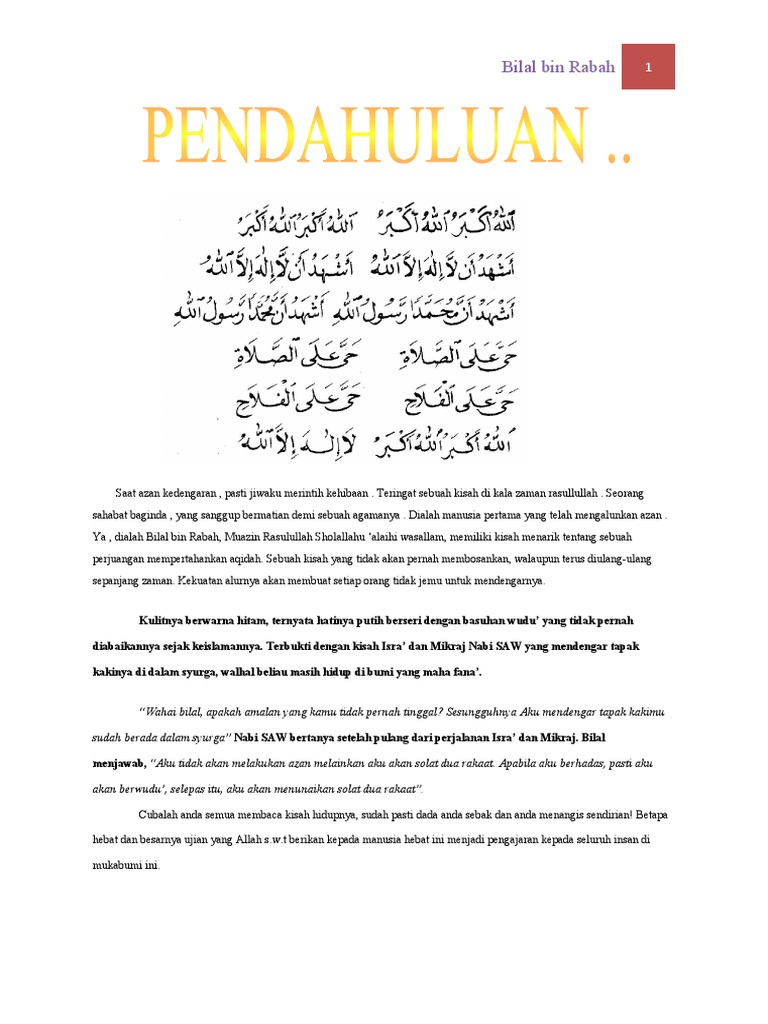 Bilal bin Rabah 1
PENDAHULUAN ..
اَللهُ اَكْبَرُ اَللهُ اَكْبَرُ اَللهُ اَكْبَرُ اَللهُ اَكْبَرُ
اَشْهَدُ اَنْ لَّا اِلٰهَ اِلَّا اللهُ اَشْهَدُ اَنْ لَّا اِلٰهَ اِلَّا اللهُ
اَشْهَدُ اَنَّ مُحَمَّدًا رَّسُوْلُ اللهِ اَشْهَدُ اَنَّ مُحَمَّدًا رَّسُوْلُ اللهِ
حَىَّ عَلَى الصَّلَاةِ حَىَّ عَلَى الصَّلَاةِ
حَىَّ عَلَى الْفَلَاحِ حَىَّ عَلَى الْفَلَاحِ
اَللهُ اَكْبَرُ اَللهُ اَكْبَرُ لَا اِلٰهَ اِلَّا اللهُ
Saat azan kedengaran , pasti jiwaku merintih kehibaan . Teringat sebuah kisah di kala zaman rasullullah . Seorang
sahabat baginda , yang sanggup bermatian demi sebuah agamanya . Dialah manusia pertama yang telah mengalunkan azan .
Ya , dialah Bilal bin Rabah, Muazin Rasulullah Sholallahu ‘alaihi wasallam, memiliki kisah menarik tentang sebuah
perjuangan mempertahankan aqidah. Sebuah kisah yang tidak akan pernah membosankan, walaupun terus diulang-ulang
sepanjang zaman. Kekuatan alurnya akan membuat setiap orang tidak jemu untuk mendengarnya.
Kulitnya berwarna hitam, ternyata hatinya putih berseri dengan basuhan wudu’ yang tidak pernah
diabaikannya sejak keislamannya. Terbukti dengan kisah Isra’ dan Mikraj Nabi SAW yang mendengar tapak
kakinya di dalam syurga, walhal beliau masih hidup di bumi yang maha fana’.
“Wahai bilal, apakah amalan yang kamu tidak pernah tinggal? Sesungguhnya Aku mendengar tapak kakimu
sudah berada dalam syurga” Nabi SAW bertanya setelah pulang dari perjalanan Isra’ dan Mikraj. Bilal
menjawab, “Aku tidak akan melakukan azan melainkan aku akan solat dua rakaat. Apabila aku berhadas, pasti aku
akan berwudu’, selepas itu, aku akan menunaikan solat dua rakaat”.
Cubalah anda semua membaca kisah hidupnya, sudah pasti dada anda sebak dan anda menangis sendirian! Betapa
hebat dan besarnya ujian yang Allah s.w.t berikan kepada manusia hebat ini menjadi pengajaran kepada seluruh insan di
mukabumi ini.